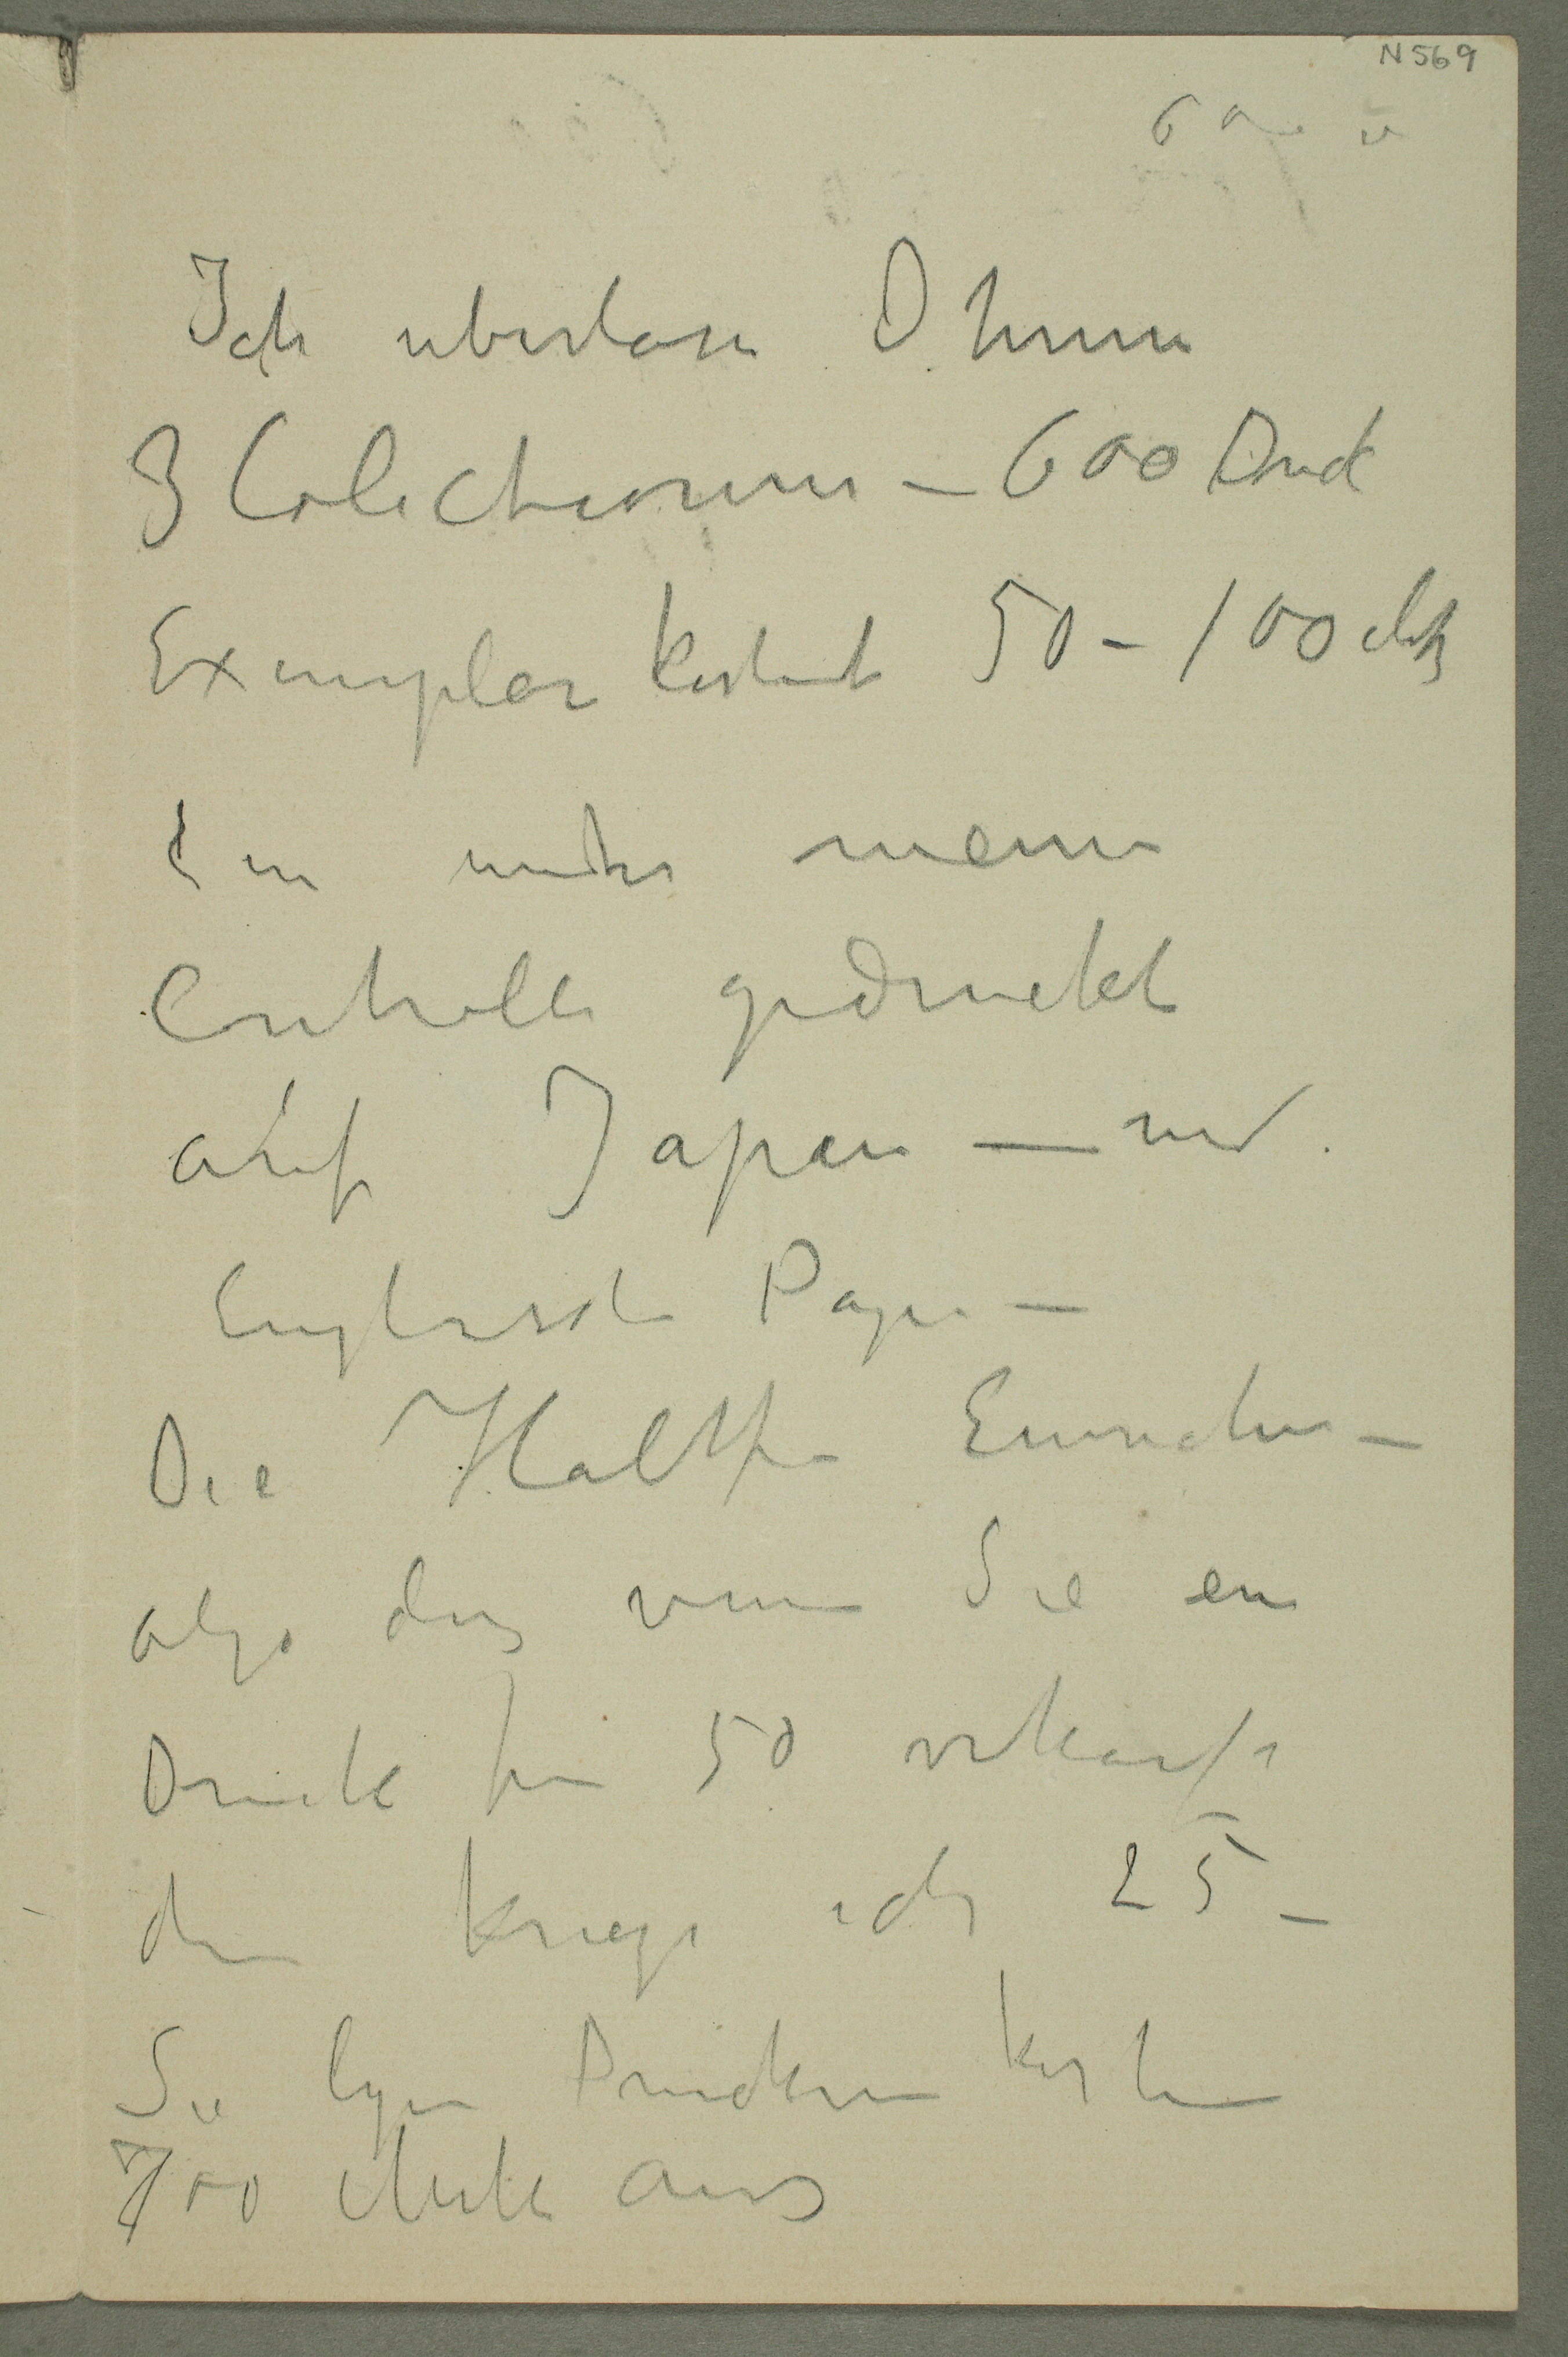 N 569
600
Ich uberlasse Ihnen
3 Colectionen – 600 Druck
Exemplar kostet 50 – 100 Mk
Ein unter meine
Controlle gedruckt
auf Japan — und
Englisch Papir —
Die Halfte Einnahme —
also das wenn Sie ein
Druck für 50 verkaufe
dan kriege ich 25 –
Sie legen Druckerei kosten
700 Mark aus